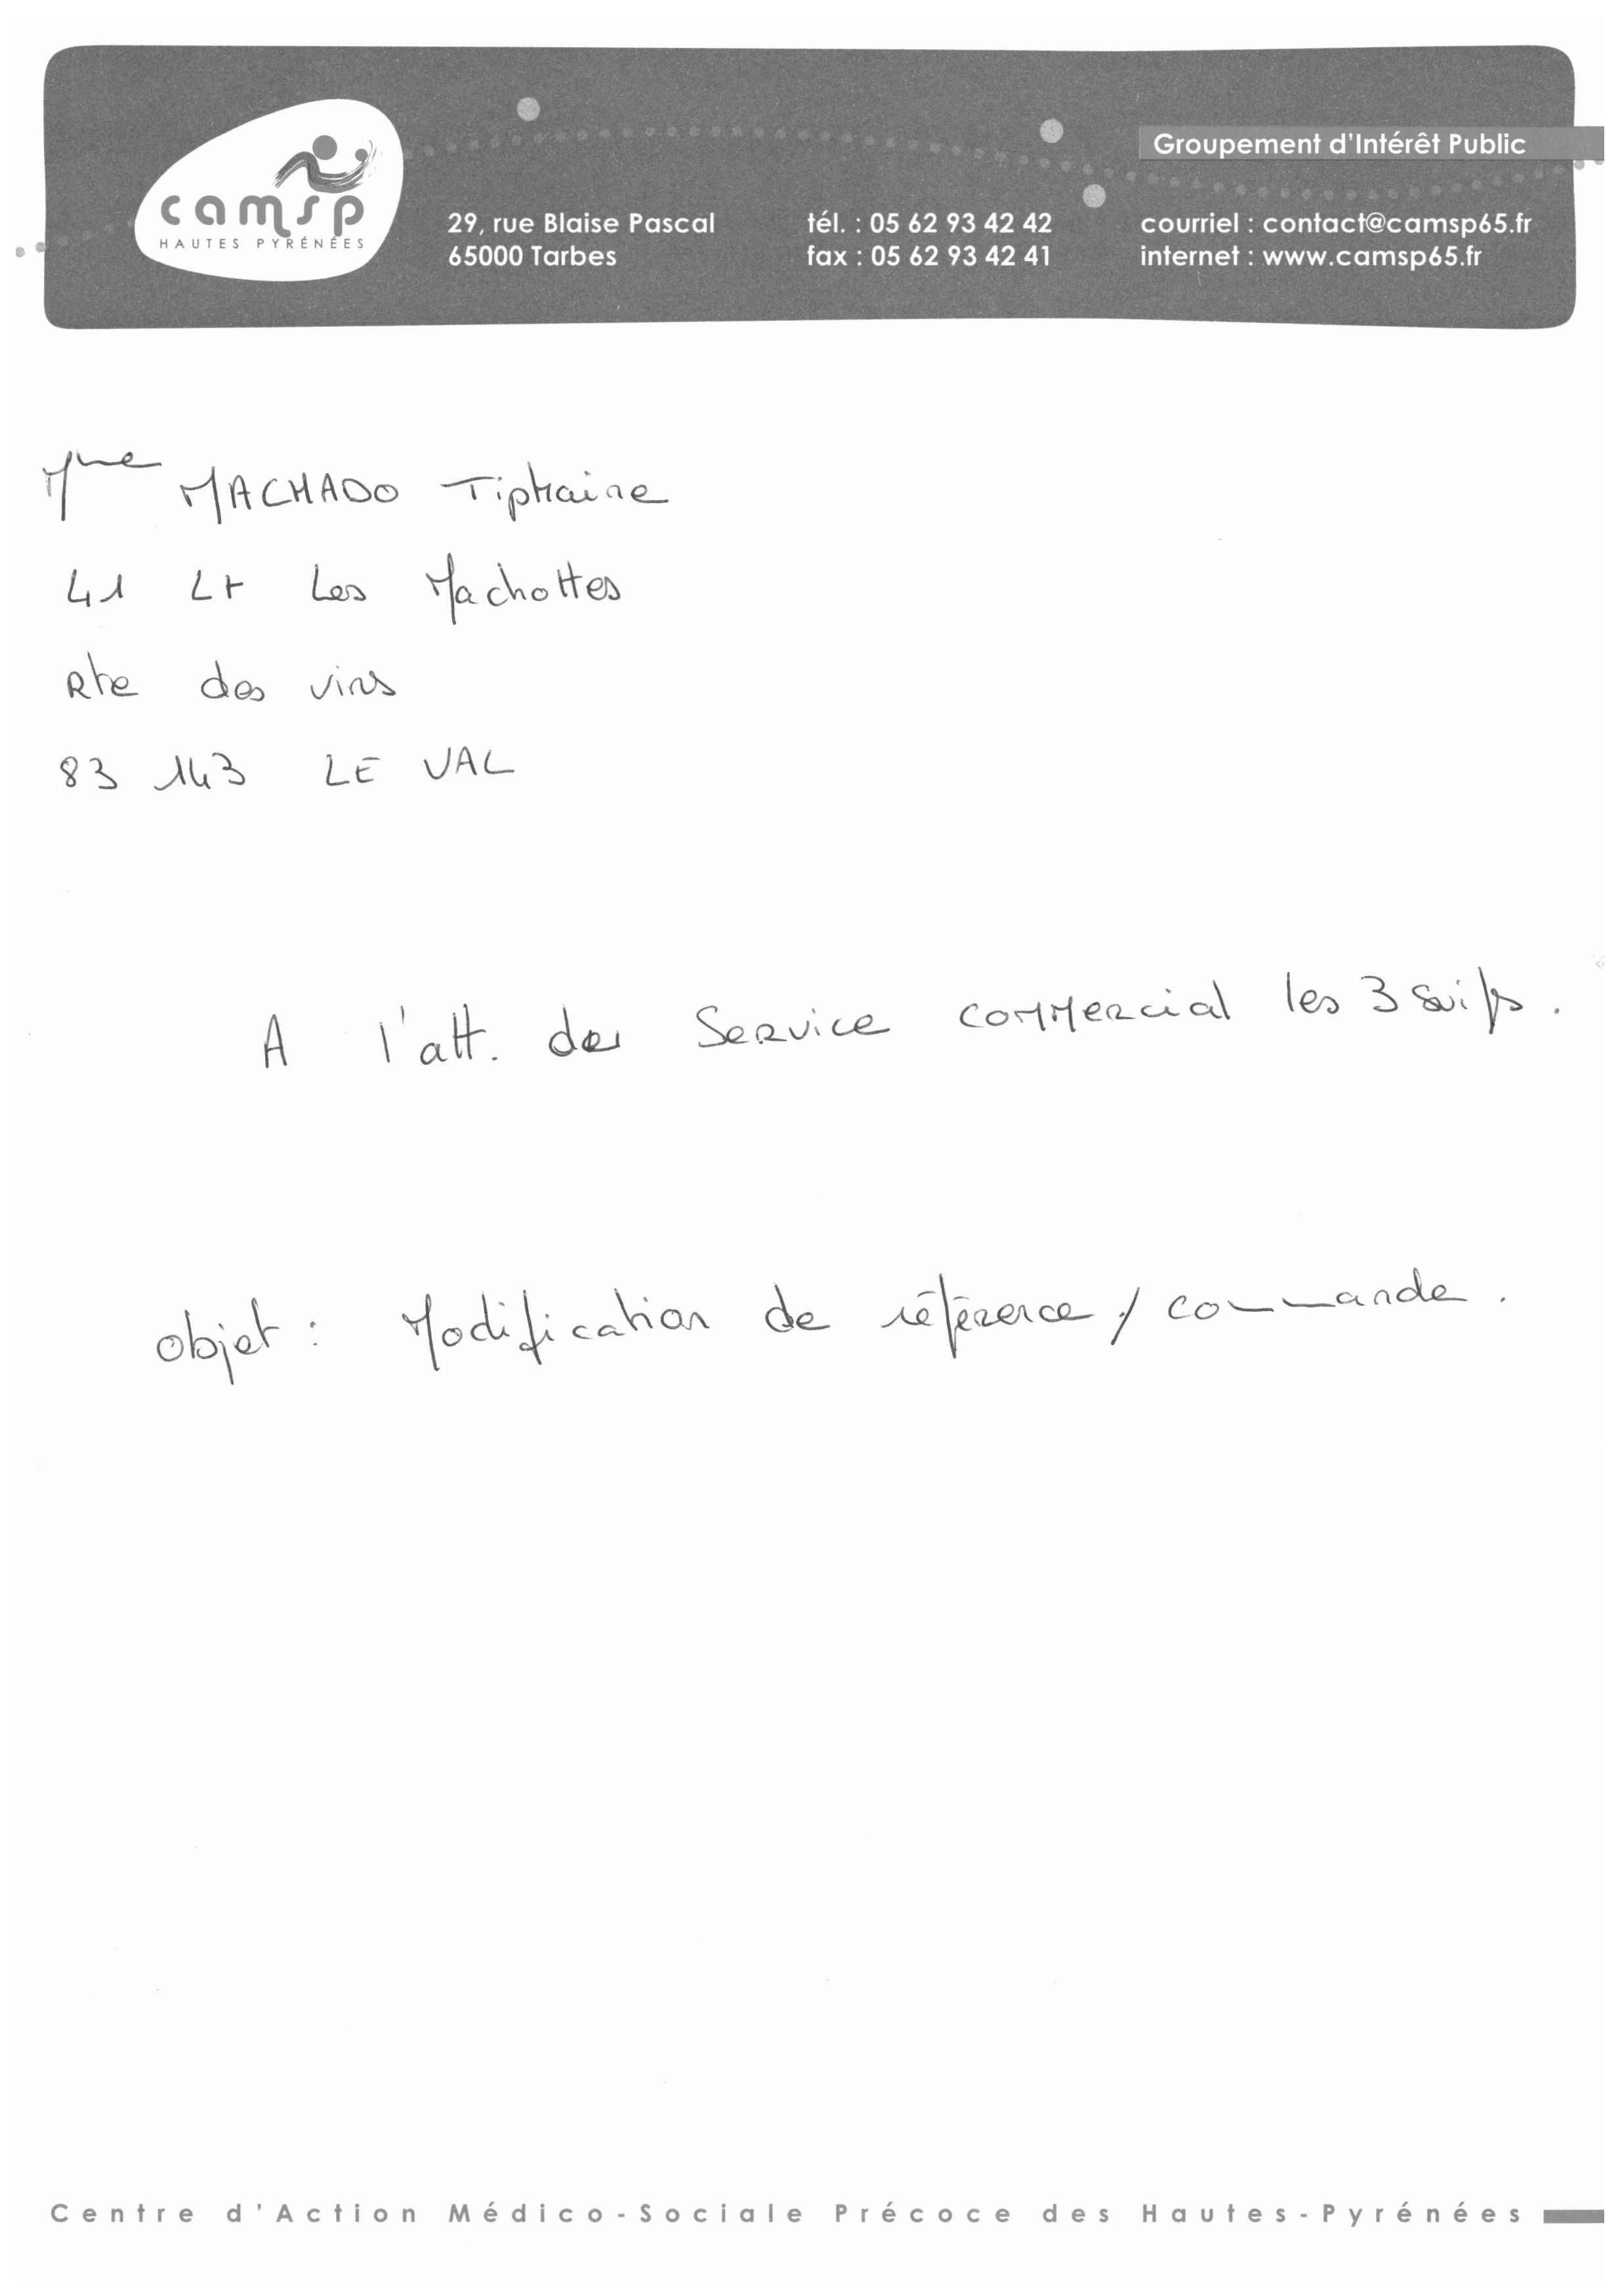 Groupement d'Intérêt Public
camsp
HAUTES PYRÉNÉES
29, rue Blaise Pascal
65000 Tarbes
tél. : 05 62 93 42 42
fax : 05 62 93 42 41
courriel : contact@camsp65.fr
internet : www.camsp65.fr
Mme MACHADO Tiphaine
41 Lt Les Machottes
Rte des vins
83 143 LE VAL
A l'att. du Service commercial les 3 suisses.
objet : Modification de référence / commande.
Centre d'Action Médico-Sociale Précoce des Hautes-Pyrénées